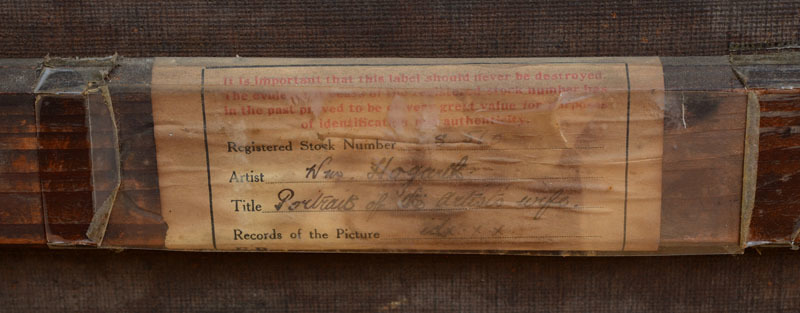 It is important that this label should never be destroyed.
The evidence of the registered stock number has
in the past proved to be of very great value for purposes
of identification and authenticity.
Registered Stock Number
Artist Wm. Hogarth
Title Portrait of the Artists wife.
Records of the Picture